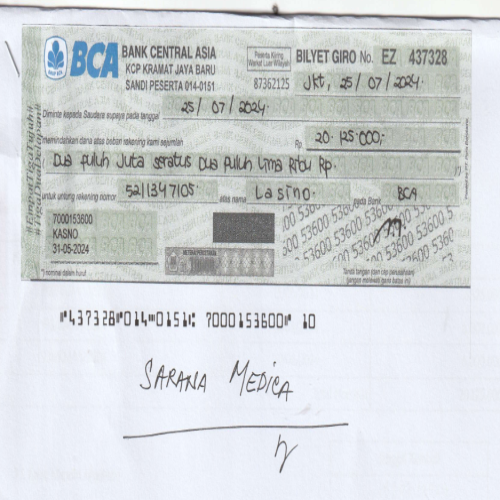 BCA BANK CENTRAL ASIA
KCP KRAMAT JAYA BARU
SANDI PESERTA 014-0151
Peserta Kliring
Warkat Luar Wilayah
87362125
BILYET GIRO No. EZ 437328
Jkt, 25/07/2024
Diminta kepada Saudara supaya pada tanggal 25/07/2024
memindahkan dana atas beban rekening kami sejumlah Rp 20.125.000,-
Dua puluh Juta seratus Dua puluh lima Ribu Rp.
untuk untung rekening nomor 5211347105 atas nama Lasino pada Bank BCA
7000153600
KASNO
31-05-2024
*) nominal dalam huruf
Tanda tangan (dan cap perusahaan)
(jangan melewati garis batas ini)
#EmpatTigaTujuh#
#TigaDuaDelapan#
437328 014 0151 7000153600 10
SARANA MEDICA